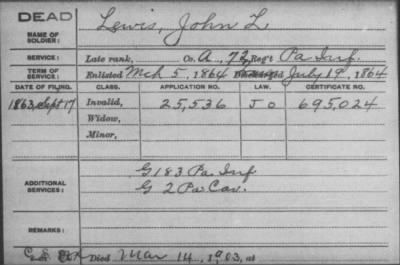 DEAD
NAME OF SOLDIER: Lewis, John L.
SERVICE: Late rank, Co. A, 72, Reg't Pa Inf.
TERM OF SERVICE: Enlisted Mch 5, 1864 July 19, 1864
DATE OF FILING. CLASS. APPLICATION NO. LAW. CERTIFICATE NO.
1863, Sept 17 Invalid, 25,536 J O 695,024
Widow,
Minor,
ADDITIONAL SERVICES: G 183 Pa Inf
G 2 Pa Cav.
REMARKS:
Died Mar 14, 1903, at